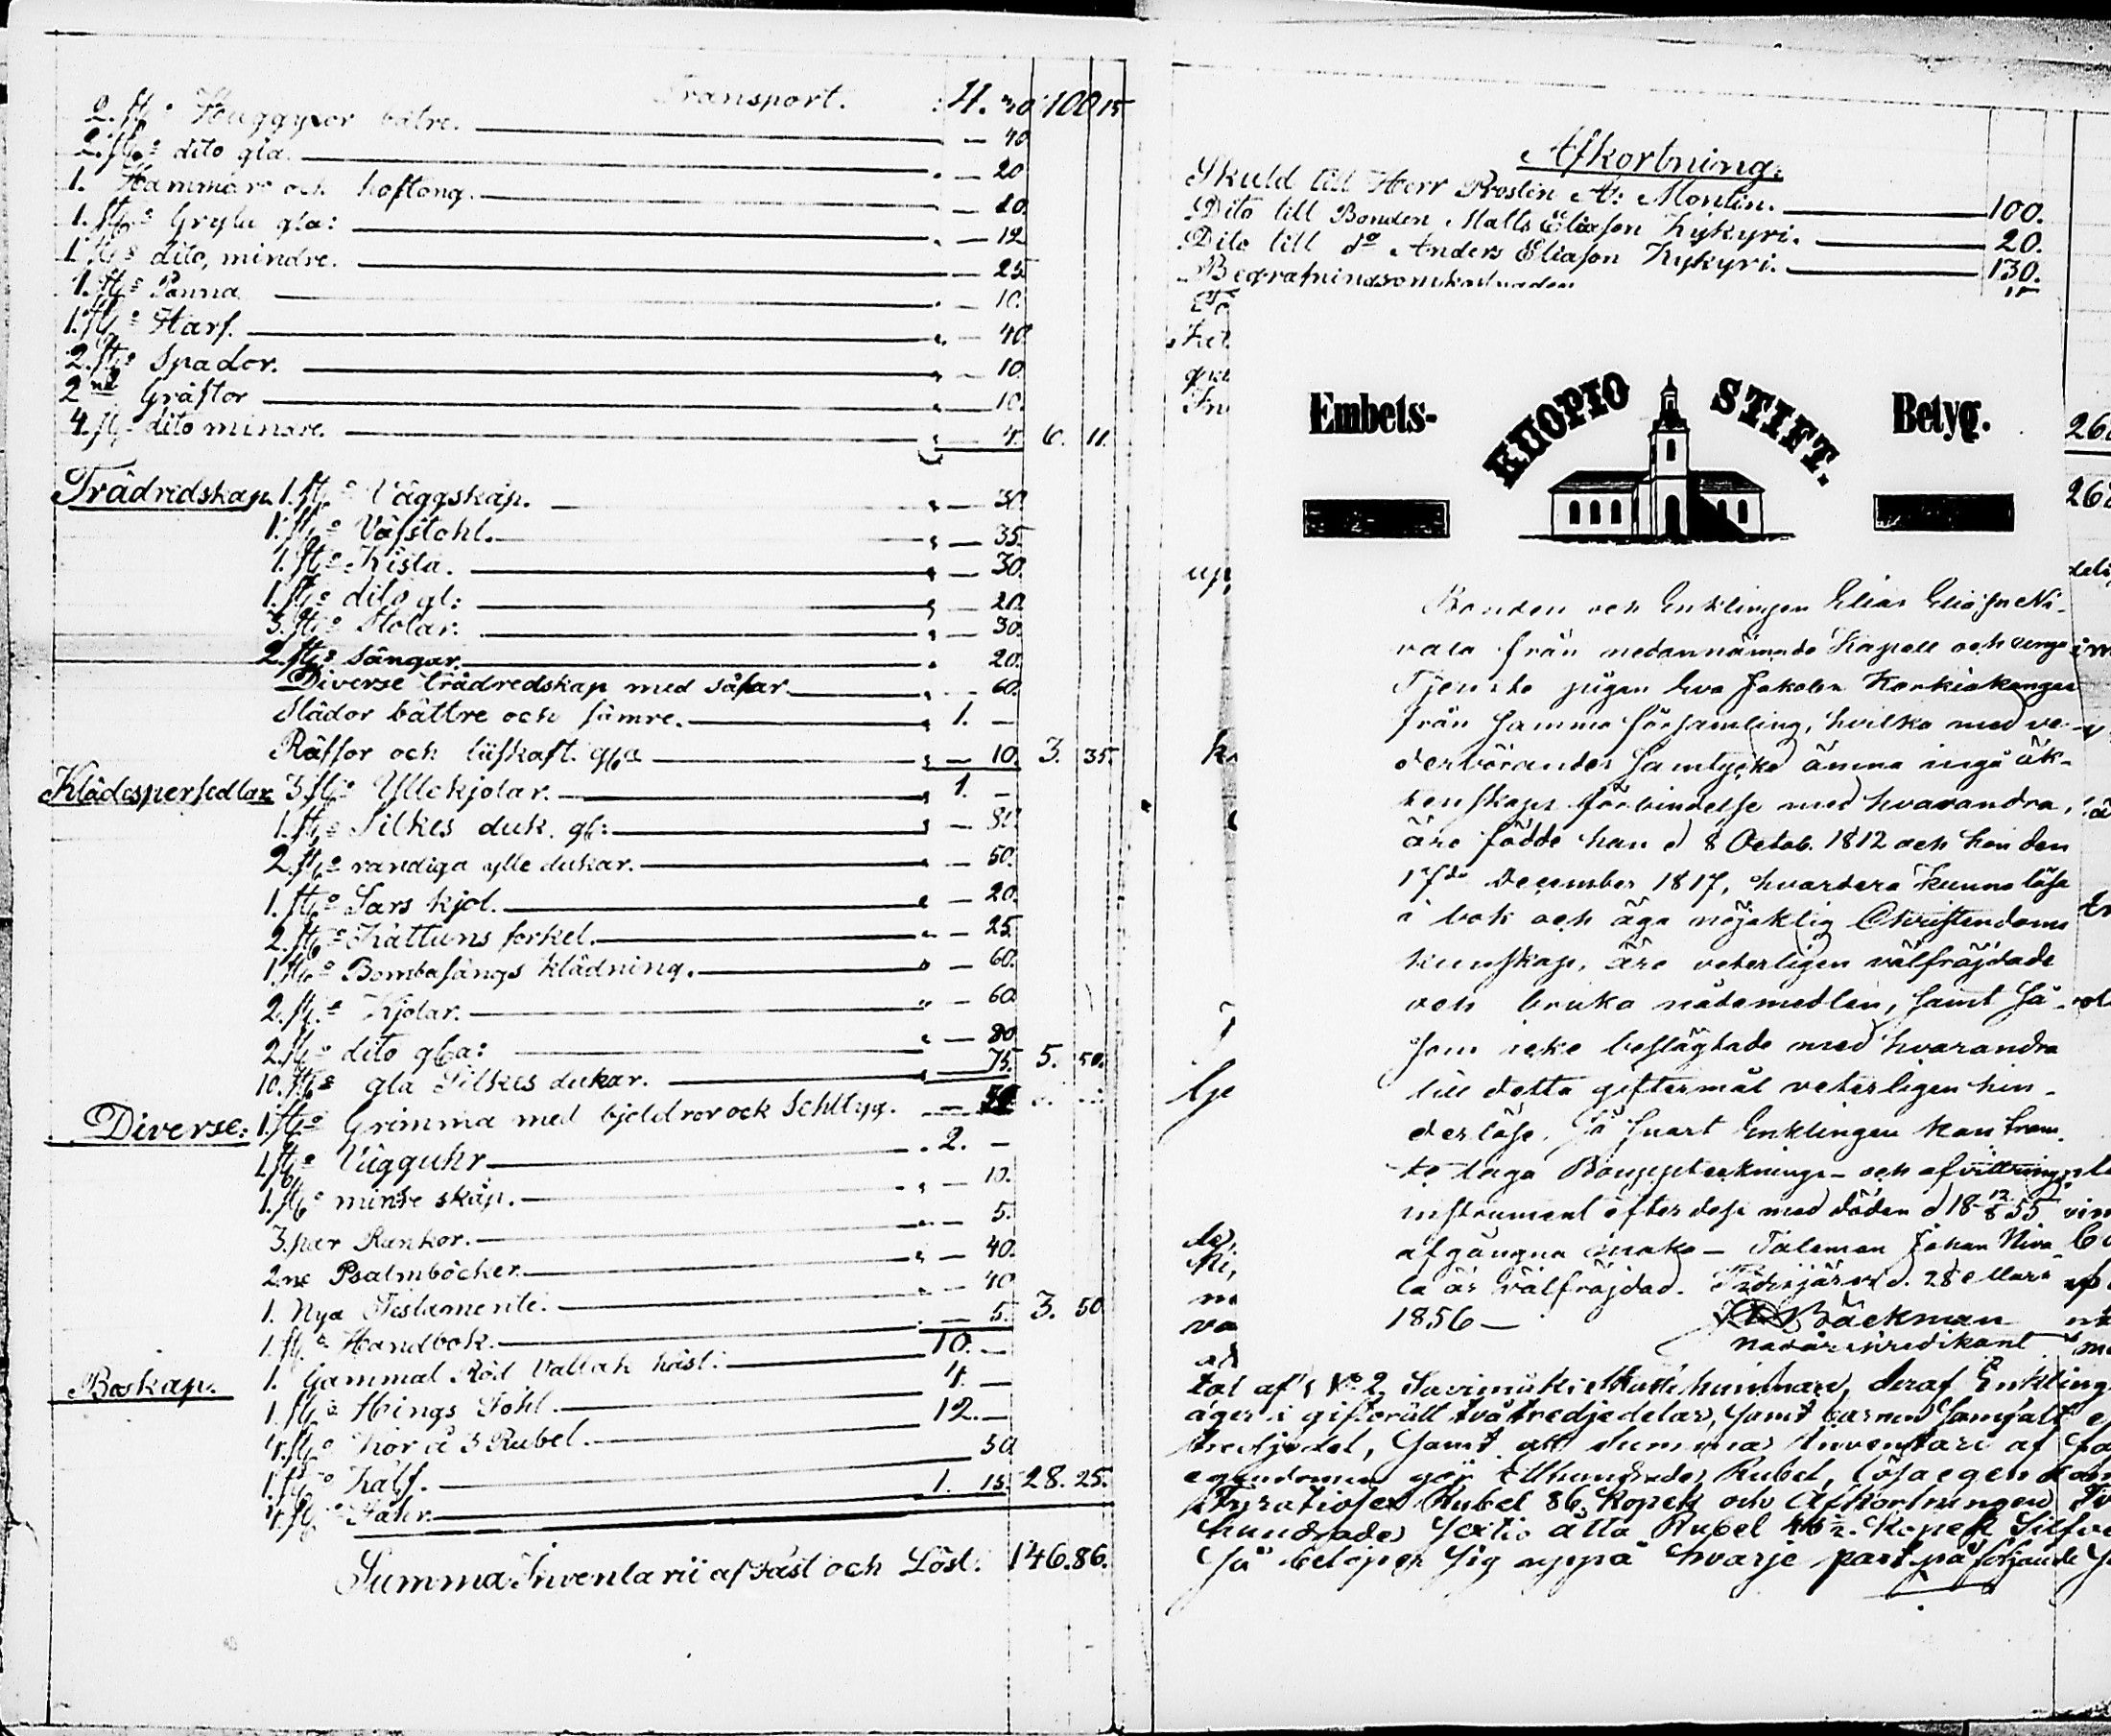 Transport. 4. 30 100 15
2. st:e Huggyxor bätre. — 40
2. st:e dito gla. — 20
1. Hammare och hoftong. — 20.
1. st:e Gryta gla: — 12
1 st:e dito, mindre. — 25
1. st:e Panna — 10.
1. st:e Harf. — 40
2. st:e Spador. — 10.
2ne Gräftor — 10.
4. st:e dito mindre. — 4. 6. 11.
Trädredskap. 1. st:e Väggskåp. — 30.
1. st:e Väfstohl. — 35.
1. st:e Kista. — 30.
1. st:e dito gl: — 20.
3. st:e Stolar. — 30.
2. st:e Sängar. — 20.
Diverse trädredskap med såfar — 60.
Slädor bättre och sämre. 1. —
Räffor och liiskaft. gla — 10. 3. 35.
Klädespersedlar 3. st:e Yllekjolar. 1. —
1. st:e Silkes duk. gl:
2. st:e randiga ylle dukar. — 50.
1. st:e Sars kjol. — 20.
2. st:e Kattuns förkel. — 25
1. st:e Bombasängs klädning. — 60.
2. st:e Kjolar. — 60
2. st:e dito gla: — 80
10. st:e gla Silkes dukar. 75. 5. 50.
Diverse: 1. st:e Grimma med bjeldror ock Schltyg.
1. st:e Vägguhr 2. —
1. st:e mindre skåp. — 10.
3. par Rankor. — 5.
2ne Psalmböcker — 40.
1. Nya Testamente. — 40
1. st:e Handbok. — 5. 3. 50
Boskap. 1. Gammal Röd Vallack häst. 10. —
1. st:e Hings Fohl. 4. —
4. st:e Kor à 3 Rubel. 12. —
1. st:e Kalf. 50
4. st:e Fahr. 1. 15. 28. 25.
Summa Inventarii af Fast och Löst. 146.86.
Afkortning.
Skuld till Herr Prosten A: Montin. 100.
Dito till Bonden Matts Eliasson Kykyri. 20.
Dito till do Anders Eliason Kykyri. 130.
Begrafningsomkostnaden
Embets- KUOPIO STIFT. Betyg.
Bonden och Enklingen Elias Eliasson Ni-
vala från nedannämnde Kapell och
Tjenste pigan Eva Jakobsn Korkiakangas
från samma församling, hvilka med ve-
derbörandes samtycke ämna ingå äk-
tenskaps förbindelse med hvarandra,
äro födde han d 8 Octob. 1812 och hon den
17de December 1817, hvardera kunna läsa
i bok och äga nöjaktig Christendoms
kunskap, äro veterligen välfräjdade
och bruka nådemedlen, samt så-
som icke beslägtade med hvarandra
till detta giftermål veterligen hin-
derlöse, så snart Enklingen kan fram-
te laga Bouppteknings- och afvittrings
instrument efter dess med döden d 18 12/8 55
afgångna maka — Talaman Johan Niva-
la är välfräjdad. d. 28 Mars
1856 — Bäckman
predikant
tal af No 2. Savimäki Skattehemman, deraf Enkling
äger i giftorätt två tredjedelar, samt barnen samfält
tredjedel, samt att summan Inventari af
egendomen gör Etthundrade Rubel, lösa egendom
Fyratiosex Rubel 86. Kopek och Afkortningen
hundrade sextio åtta Rubel Kopek Silfve
Så belöper sig uppå hvarje part på följande